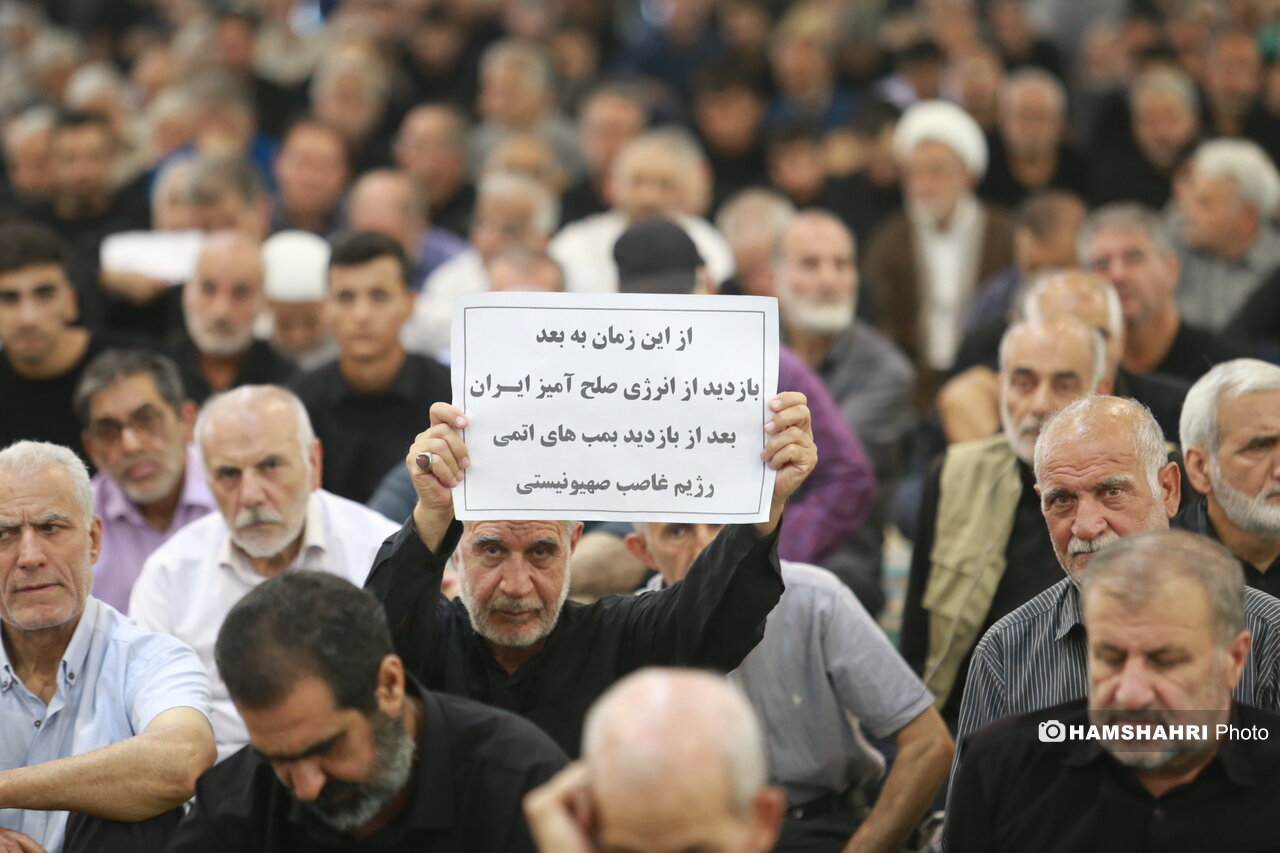 از این زمان به بعد
بازدید از انرژی صلح آمیز ایـــران
بعد از بازدید بمب های اتمی
رژیم غاصب صهیونیستی
HAMSHAHRI Photo